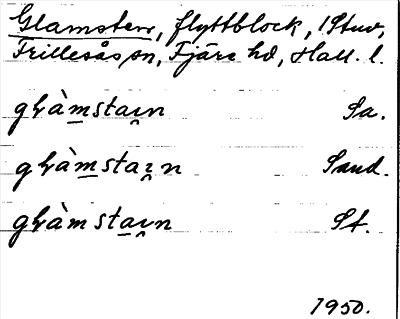 Glamsten, flyttblock, 1 Stuv,
Frillesås sn, Fjäre hd, Hall. l.
glàmstain Sa.
glàmstain Sand.
glàmstain St.
1950.